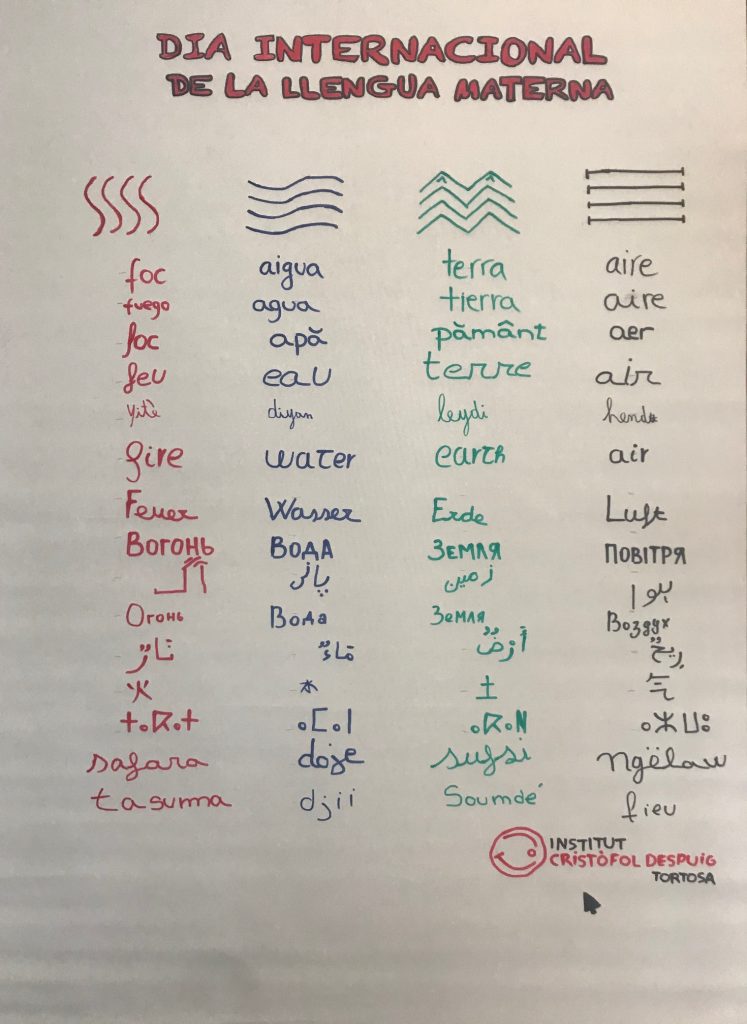 DIA INTERNACIONAL
DE LA LLENGUA MATERNA
foc aigua terra aire
fuego agua tierra aire
foc apă pământ aer
feu eau terre air
yitè diyam leydi
fire water earth air
Feuer Wasser Erde Luft
Вогонь Вода Земля Повітря
آگ پانی زمین ہوا
Огонь Вода Земля Воздух
نَارٌ مَاءٌ أَرْضٌ رِيحٌ
火 水 土 气
ⵜⴰⴽⴰⵜ ⴰⵎⴰⵏ ⴰⴽⴰⵍ ⴰⵣⵡⵓ
safara doje sufsi ngëlaw
tasuma djii Soumdé fieu
INSTITUT
CRISTÒFOL DESPUIG
TORTOSA